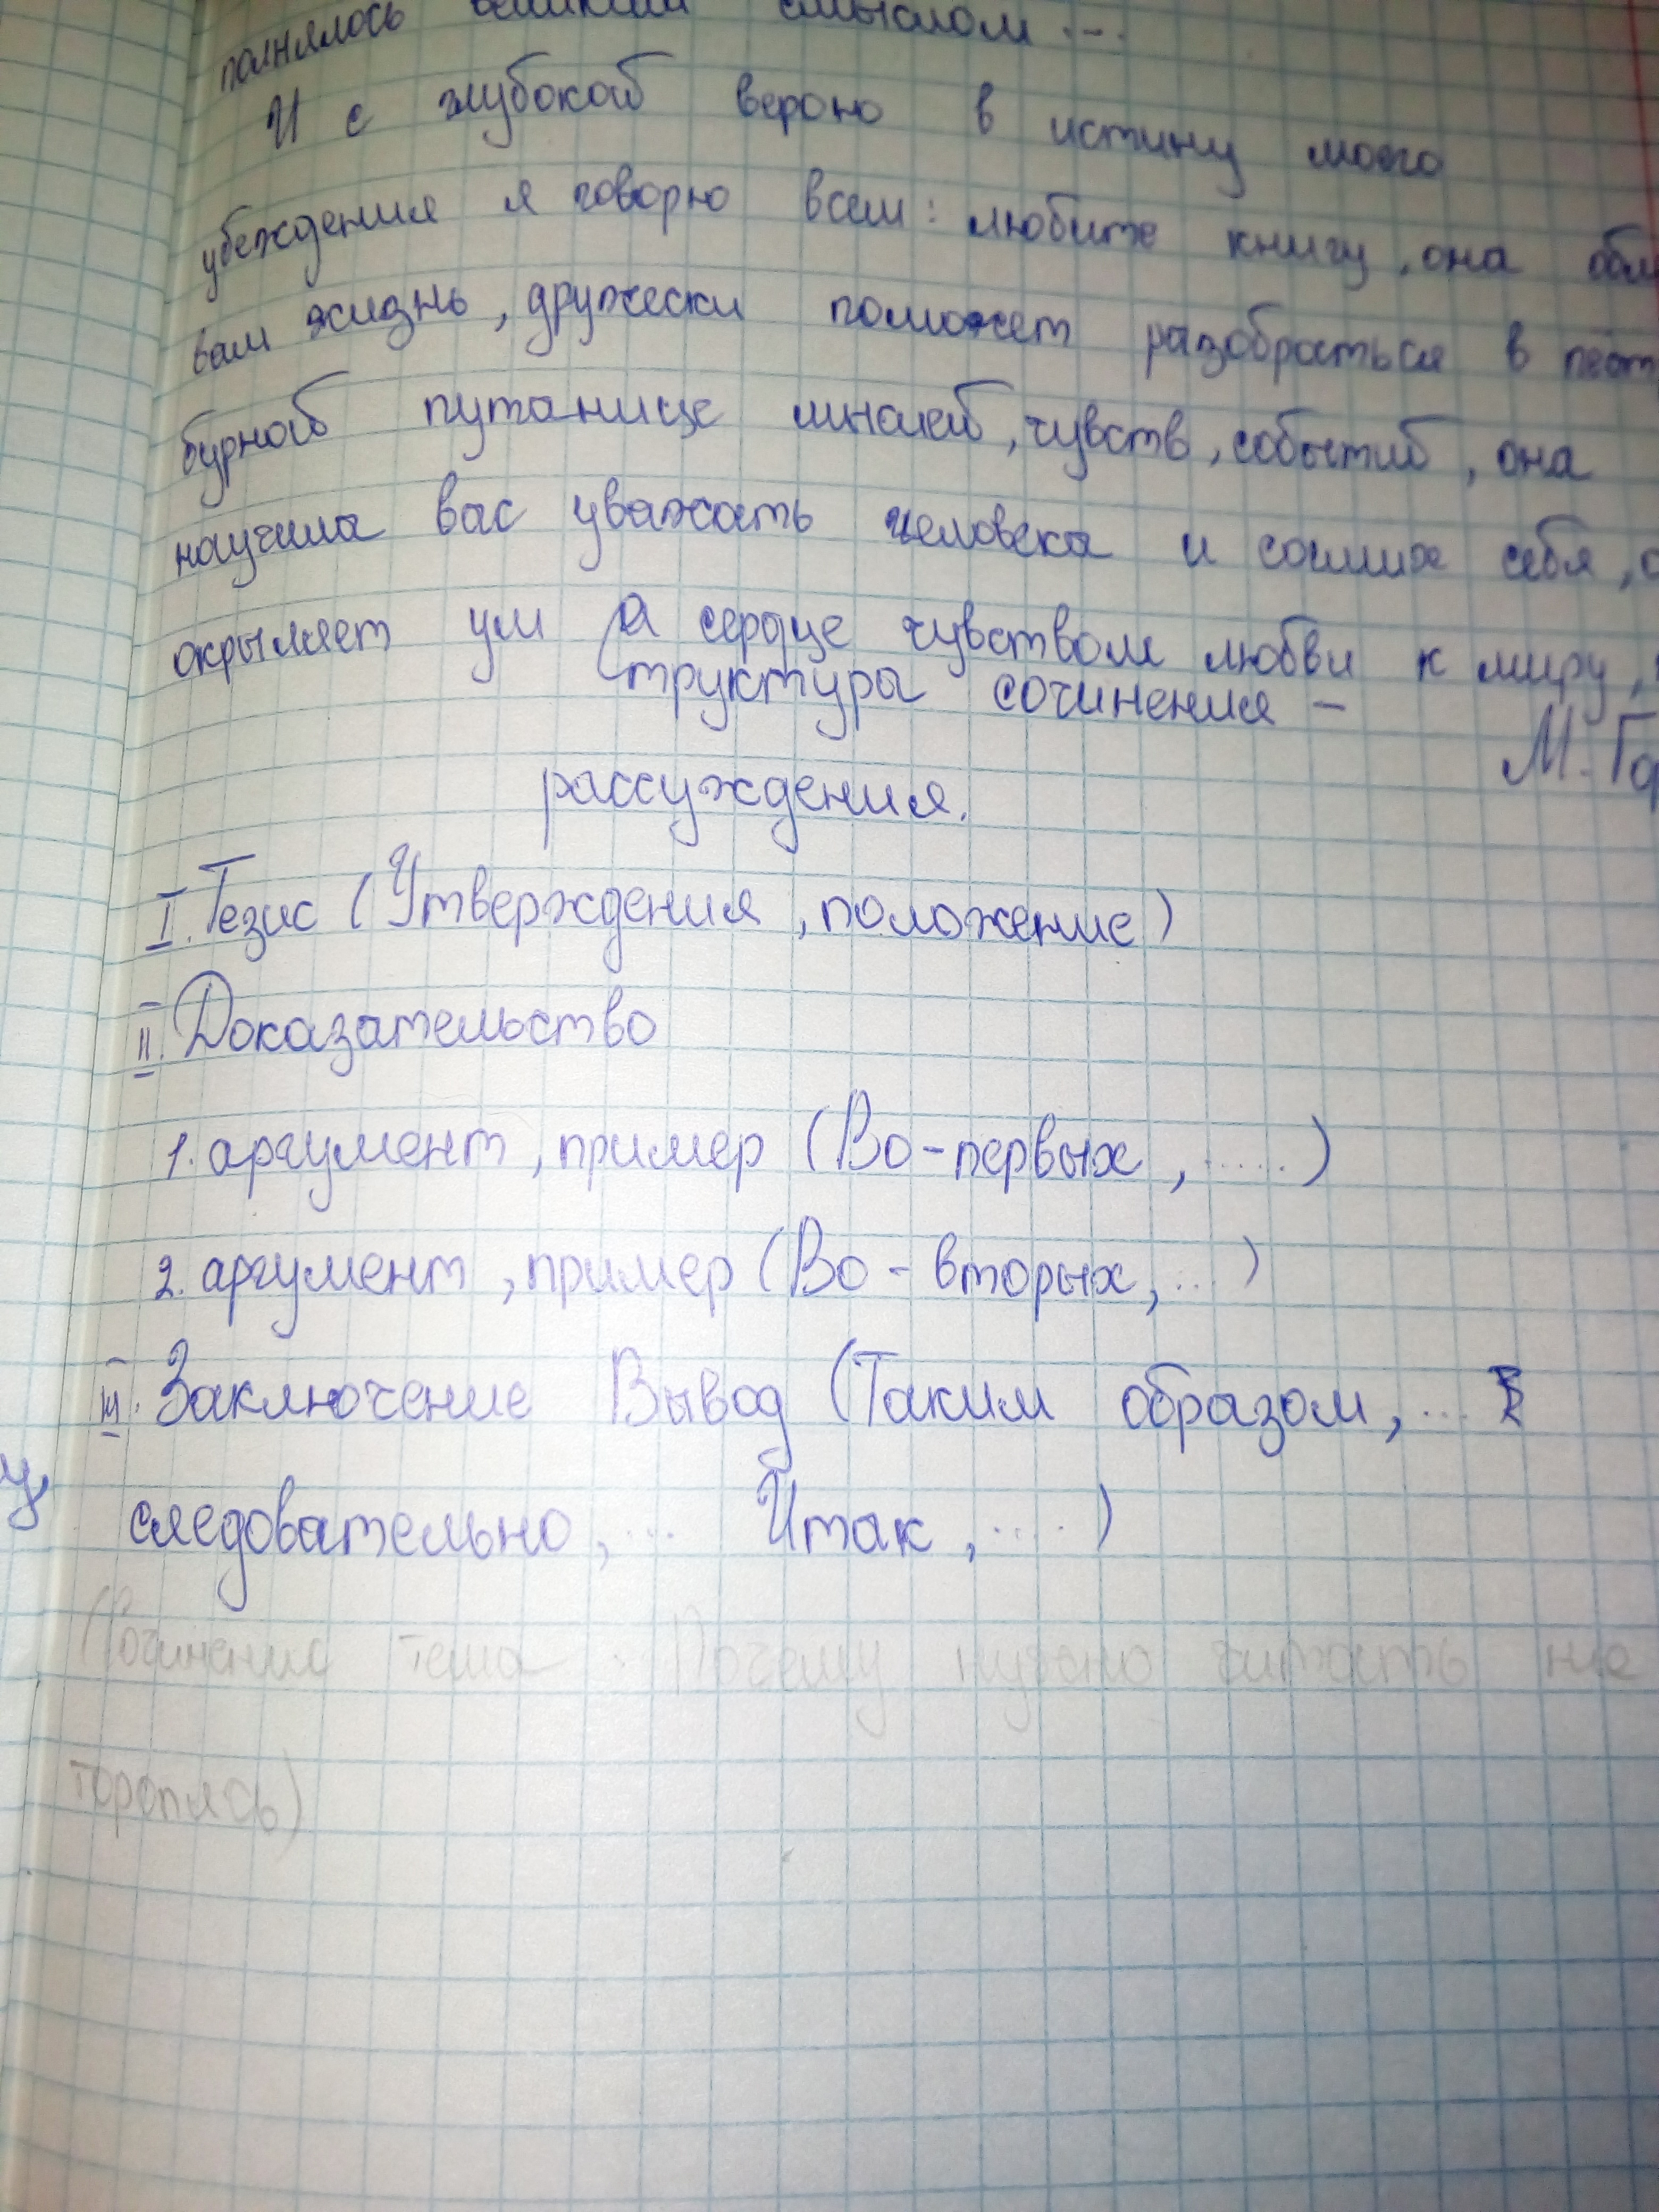 полнялось великим смыслом...
И с глубокой верою в истину моего
убеждения я говорю всем: любите книгу, она
вам жизнь, дружески поможет разобраться в
бурной путанице мыслей, чувств, событий, она
научила вас уважать человека и самих себя,
окрыляет ум а сердце чувством любви к миру,
Структуры сочинения –
М. Гор
рассуждения.
I. Тезис (Утверждения, положение)
II. Доказательство
1. аргумент, пример (Во-первых, ......)
2. аргумент, пример (Во-вторых, ...)
III. Заключение Вывод (Таким образом, ...
следовательно, ... Итак, .....)
(Сочинение тема: Почему нужно читать не
торопясь)